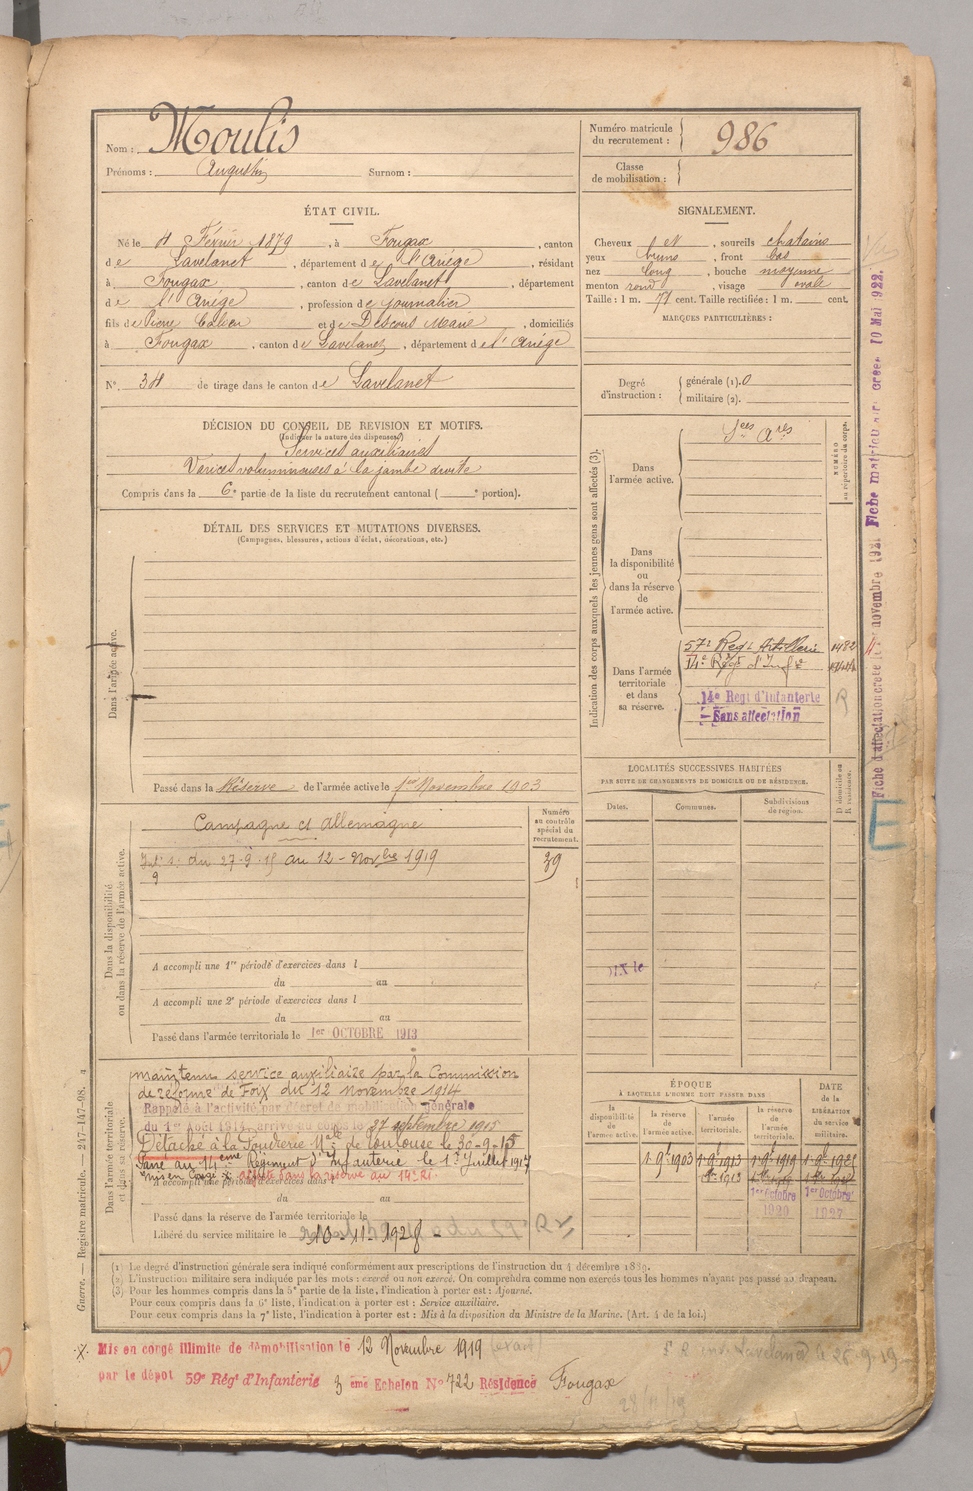 Nom : Moulis
Prénoms : Augustin Surnom :
Numéro matricule du recrutement : 986
Classe de mobilisation :
ÉTAT CIVIL.
Né le 4 Février 1879, à Fougax, canton
de Lavelanet, département de l'Ariège, résidant
à Fougax, canton de Lavelanet, département
de l'Ariège, profession de journalier
fils de Pierre et de Descous Marie, domiciliés
à Fougax, canton de Lavelanet, département de l'Ariège
N° 34 de tirage dans le canton de Lavelanet
SIGNALEMENT.
Cheveux et sourcils chatains
yeux bruns, front bas
nez long, bouche moyenne
menton rond, visage ovale
Taille : 1 m. 71 cent. Taille rectifiée : 1 m. cent.
MARQUES PARTICULIÈRES :
Degré d'instruction : générale (1). 0
militaire (2).
DÉCISION DU CONSEIL DE REVISION ET MOTIFS.
(Indiquer la nature des dispenses)
Services auxiliaires
Varices volumineuses à la jambe droite
Compris dans la 6e partie de la liste du recrutement cantonal ( e portion).
DÉTAIL DES SERVICES ET MUTATIONS DIVERSES.
(Campagnes, blessures, actions d'éclat, décorations, etc.)
Dans l'armée active.
Passé dans la Réserve de l'armée active le 1er Novembre 1903
Indication des corps auxquels les jeunes gens sont affectés (3).
NUMÉRO au répertoire du corps.
Dans l'armée active.
Sces Ares
Dans la disponibilité ou dans la réserve de l'armée active.
Dans l'armée territoriale et dans sa réserve.
57e Regt Artillerie 1482
14e Régt d'Infie
14e Regt d'Infanterie
Sans affectation
R
Fiche d'affectation créée le novembre 1921 Fiche matricule créée 10 Mai 1922.
E
LOCALITÉS SUCCESSIVES HABITÉES
PAR SUITE DE CHANGEMENTS DE DOMICILE OU DE RÉSIDENCE.
Dates. Communes. Subdivisions de région. D domicile ou R résidence.
Dans la disponibilité ou dans la réserve de l'armée active.
Numéro au contrôle spécial du recrutement.
39
Campagne ct Allemagne
Int. S. du 27.9.15 au 12 - Novbre 1919
A accompli une 1re période d'exercices dans l
du au
A accompli une 2e période d'exercices dans l
du au
Passé dans l'armée territoriale le 1er OCTOBRE 1913
Dans l'armée territoriale et dans sa réserve.
maintenu service auxiliaire par la Commission
de réforme de Foix du 12 novembre 1914
Rappelé à l'activité par décret de mobilisation générale
du 1er Août 1914 arrivé au corps le 27 septembre 1915
Détaché à la Poudrerie Nale de Toulouse le 30-9-15
Passé au 14ème Régiment d'Infanterie le 1er Juillet 1917
mis en Congé affecté dans la réserve au 14e RI
A accompli une période d'exercices dans l
du au
Passé dans la réserve de l'armée territoriale le
Libéré du service militaire le 10-11-1928
ÉPOQUE
À LAQUELLE L'HOMME DOIT PASSER DANS :
la disponibilité de l'armée active. la réserve de l'armée active. l'armée territoriale. la réserve de l'armée territoriale.
DATE de la LIBÉRATION du service militaire.
1-9-1903 1-9-1913 1-9-1919 1-9-1925
1er Octobre 1920
1er Octobre 1927
(1) Le degré d'instruction générale sera indiqué conformément aux prescriptions de l'instruction du 4 décembre 1889.
(2) L'instruction militaire sera indiquée par les mots : exercé ou non exercé. On comprendra comme non exercés tous les hommes n'ayant pas passé au drapeau.
(3) Pour les hommes compris dans la 5e partie de la liste, l'indication à porter est : Ajourné.
Pour ceux compris dans la 6e liste, l'indication à porter est : Service auxiliaire.
Pour ceux compris dans la 7e liste, l'indication à porter est : Mis à la disposition du Ministre de la Marine. (Art. 4 de la loi.)
Guerre. — Registre matricule. — 247-147-98.
Mis en congé illimité de démobilisation le 12 Novembre 1919
par le dépôt 59e Régt d'Infanterie 3 ème Echelon N° 722 Résidence Fougax
28/11/19